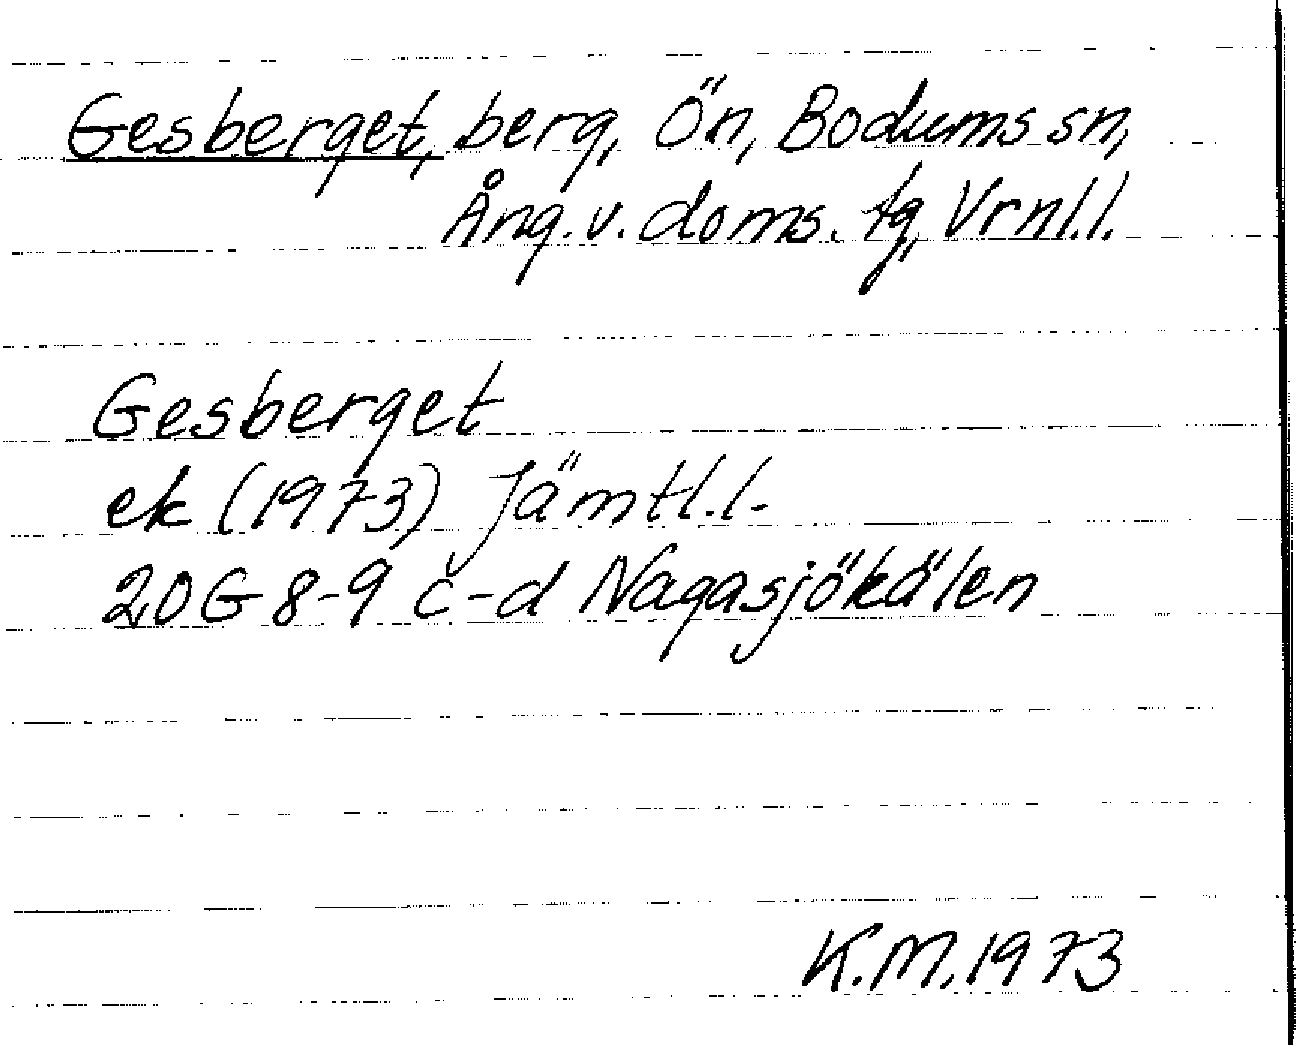 Gesberget, berg, Ön, Bodums sn,
Ång. v. doms. tg, Vrnl.l.
Gesberget
ek (1973) Jämtl.l.
20G 8-9 c-d Nagasjökälen
K.M. 1973